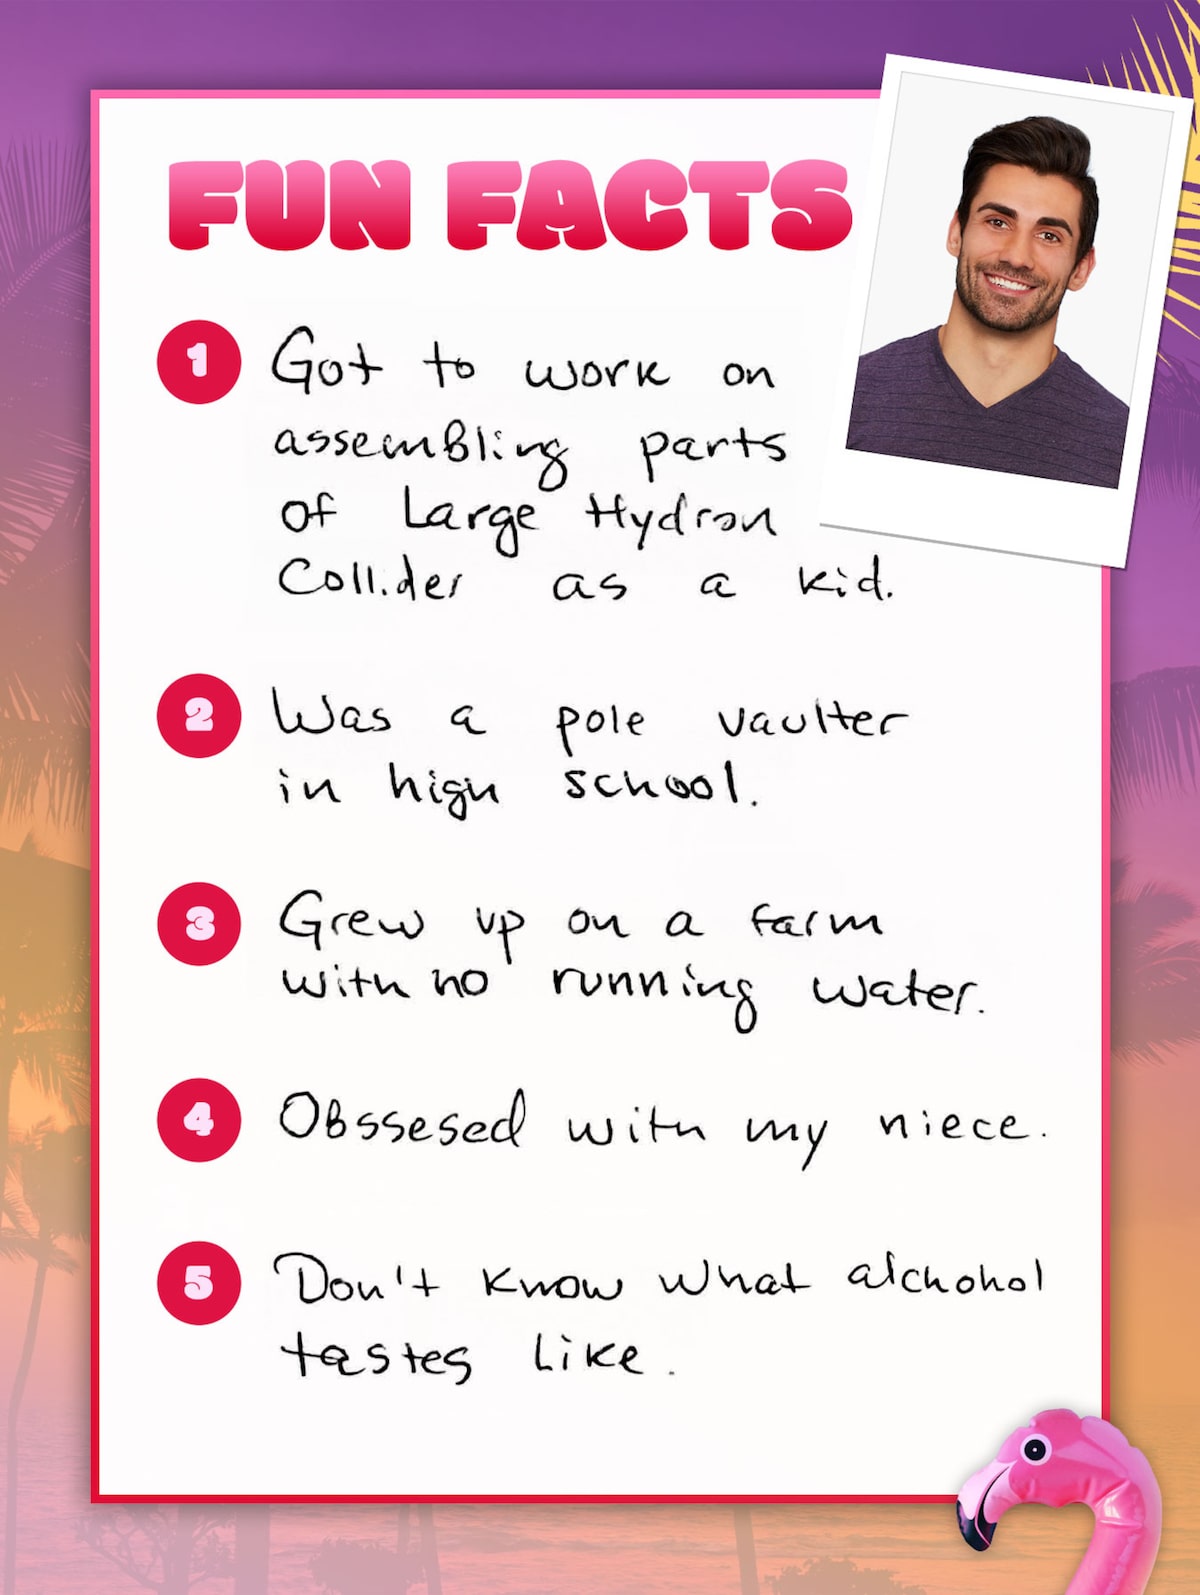 FUN FACTS
1 Got to work on
assembling parts
of Large Hydron
Collider as a kid.
2 Was a pole vaulter
in high school.
3 Grew up on a farm
with no running water.
4 Obssesed with my niece.
5 Don't know what alchohol
tastes like.